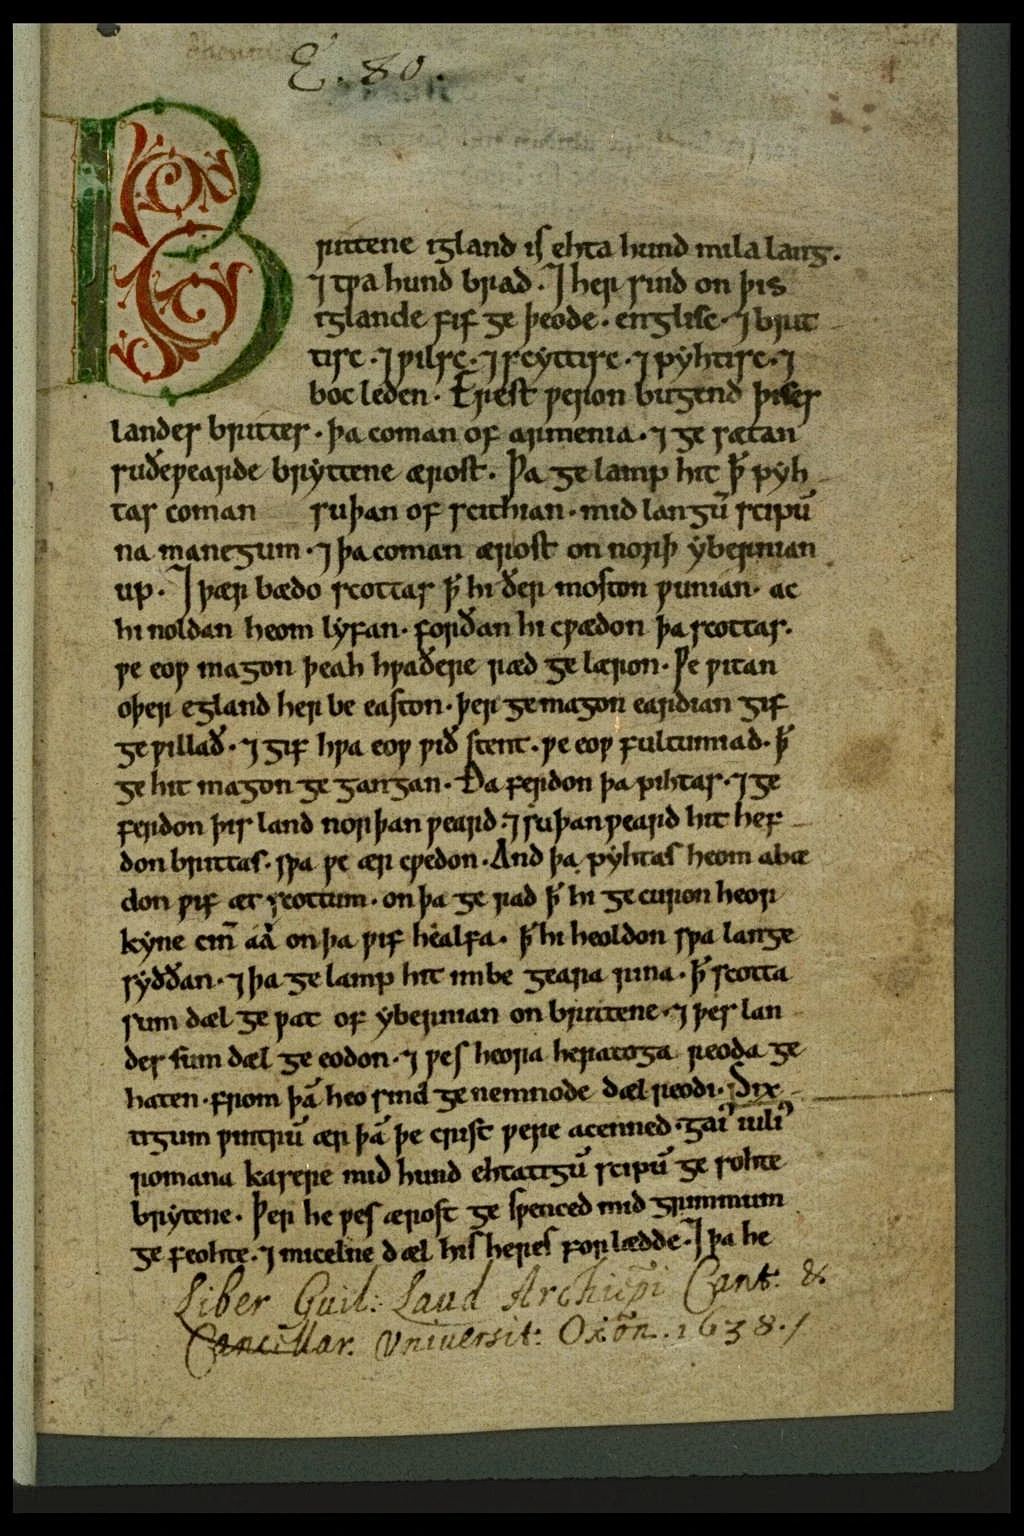 E. 80.
Brittene igland is ehta hund mila lang.
⁊ tƿa hund brad. ⁊ her sind on þis
iglande fif ge þeode. englisc. ⁊ brit
tisc. ⁊ ƿilsc. ⁊ scyttisc. ⁊ pyhtisc. ⁊
boc leden. Erest ƿeron bugend þises
landes brittes. þa coman of armenia. ⁊ ge sætan
suðeƿearde bryttene ærost. Þa ge lamp hit þ̄ pyh
tas coman suþan of scithian. mid langū scipū
na manegum. ⁊ þa coman ærost on norþ ybernian
up. ⁊ þær bædo scottas þ̄ hi ðer moston ƿunian. ac
hi noldan heom lyfan. forðan hi cƿædon þa scottas.
ƿe eoƿ magon þeah hƿaðere ræd ge læron. Ƿe ƿitan
oþer egland her be easton. þer ge magon eardian gif
ge ƿillað. ⁊ gif hƿa eoƿ ƿið stent. ƿe eoƿ fultumiad. þ̄
ge hit magon ge gangan. Ða ferdon þa pihtas. ⁊ ge
ferdon þis land norþan ƿeard. ⁊ suþan ƿeard hit hef
don brittas. sƿa ƿe ær cƿedon. And þa pyhtas heom abæ
don ƿif æt scottum. on þa ge rad þ̄ hi ge curon heor
kyne cin̄ aa on þa ƿif healfa. þ̄ hi heoldon sƿa lange
syððan. ⁊ þa ge lamp hit imbe geara rina. þ̄ scotta
sum dæl ge ƿat of ybernian on brittene. ⁊ þes lan
des sum dæl ge eodon. ⁊ ƿes heora heratoga reoda ge
haten. from þā heo sind ge nemnode dæl reodi. Six
tigum ƿintrū ær þā þe crist ƿere acenned. gaiꝰ iuliꝰ
romana kasere mid hund ehtatigū scipū ge sohte
brytene. Þer he ƿes ærost ge sƿenced mid grimmum
ge feohte. ⁊ micelne dæl his heres forlædde. ⁊ þa he
Liber Guil: Laud Archiēpi Cant. &
Cancillar. Vniuersit: Oxōn. 1638./